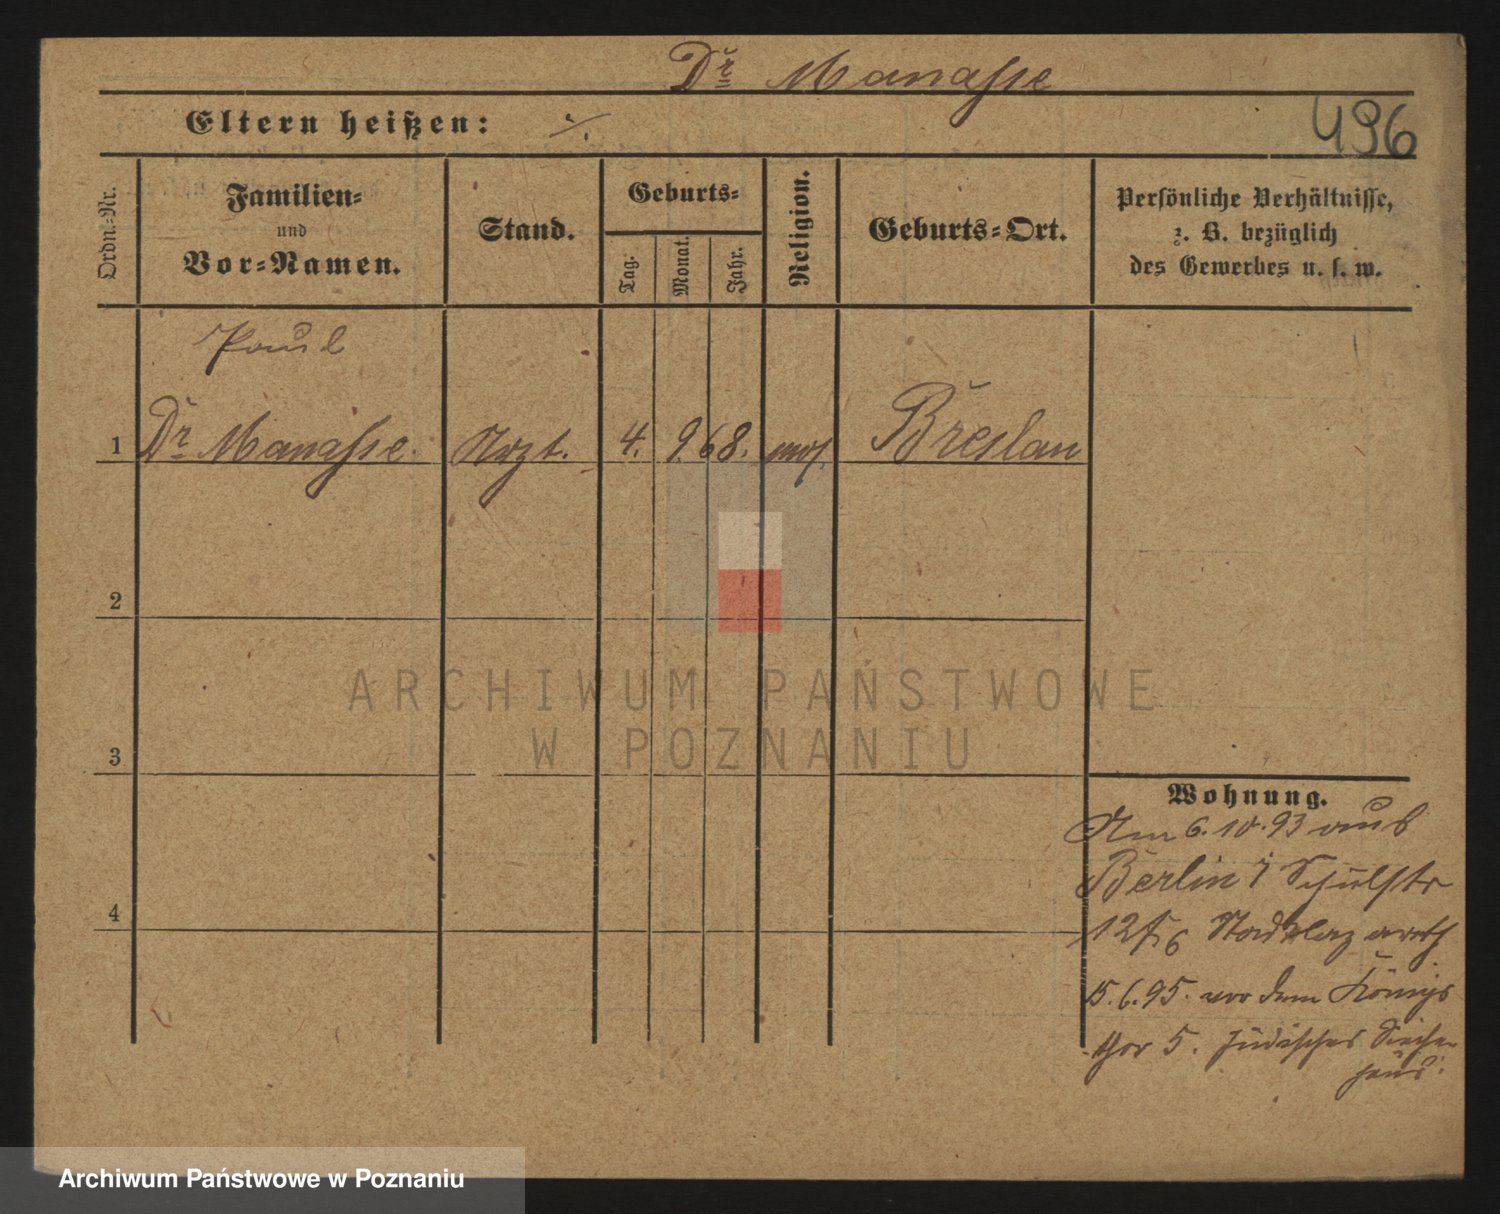 Dr Manasse
496
Eltern heißen: ./.
Ordn.-Nr.
Familien-
und
Vor-Namen.
Stand.
Geburts-
Tag.
Monat.
Jahr.
Religion.
Geburts-Ort.
Persönliche Verhältnisse,
z. B. bezüglich
des Gewerbes u. s. w.
Paul
1 Dr Manasse. Arzt. 4. 9. 68. mos. Breslau
2
3
4
Wohnung.
Am 6.10.93 aus
Berlin Schulstr
12 Stadtlazareth
15.6.95. vor dem Königs
thor 5. jüdisches Siechen
haus.
ARCHIWUM PAŃSTWOWE
W POZNANIU
Archiwum Państwowe w Poznaniu